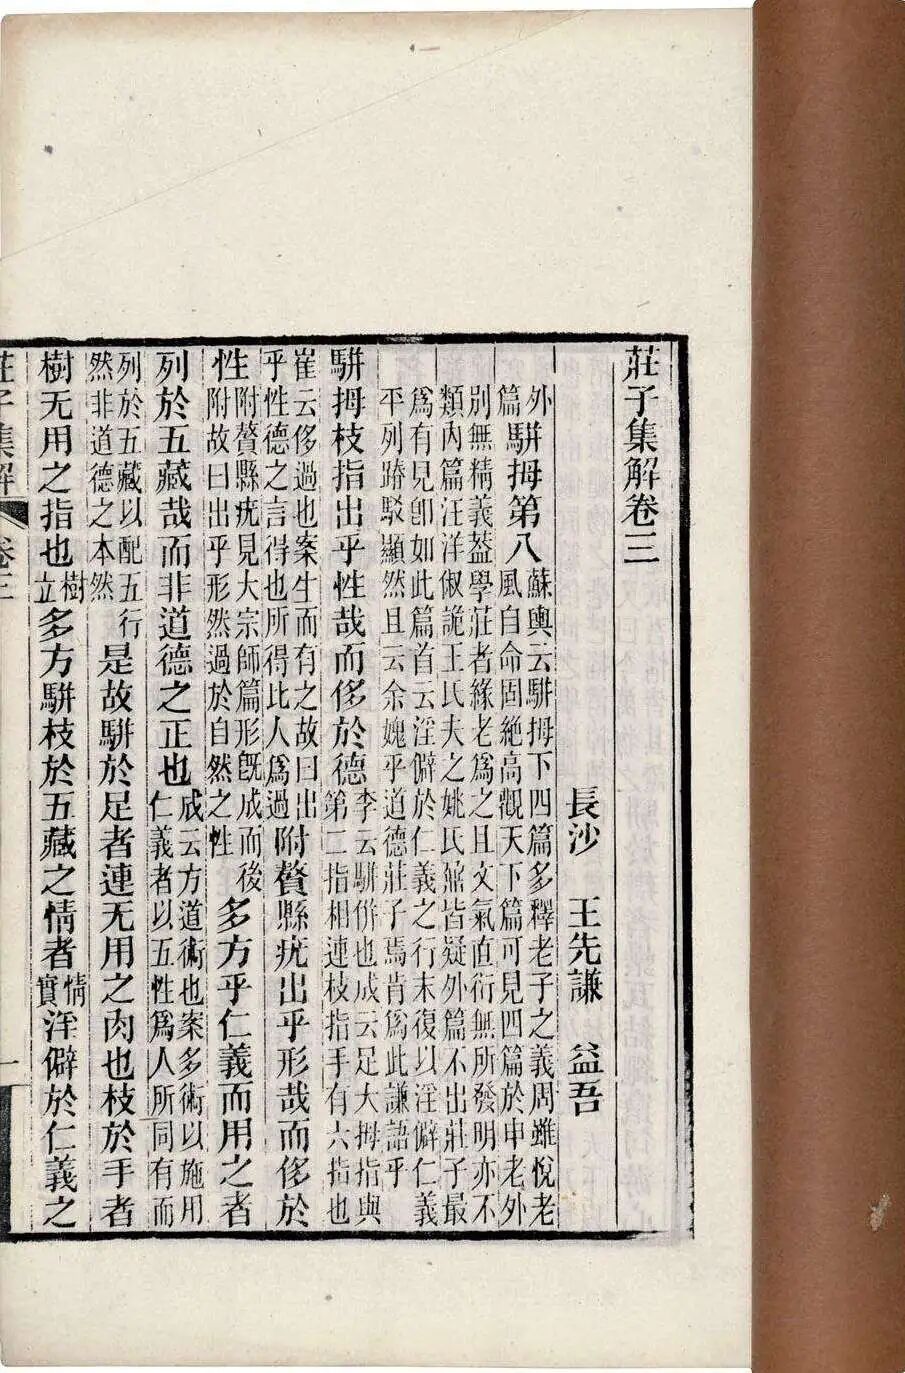 莊子集解卷三
長沙 王先謙 益吾
外篇駢拇第八蘇輿云駢拇下四篇多釋老子之義周雖悅老風自命固絕高觀天下篇可見四篇於申老外
別無精義葢學莊者緣老爲之且文氣直衍無所發明亦不類內篇汪洋俶詭王氏夫之姚氏鼐皆疑外篇不出莊子最
爲有見卽如此篇首云淫僻於仁義之行末復以淫僻仁義平列踳駁顯然且云余媿乎道德莊子焉肯爲此謙語乎
駢拇枝指出乎性哉而侈於德李云駢併也成云足大拇指與第二指相連枝指手有六指也
崔云侈過也案生而有之故曰出乎性德之言得也所得比人爲過附贅縣疣出乎形哉而侈於
性附贅縣疣見大宗師篇形旣成而後附故曰出乎形然過於自然之性多方乎仁義而用之者
列於五藏哉而非道德之正也成云方道術也案多術以施用仁義者以五性爲人所同有而
列於五藏以配五行然非道德之本然是故駢於足者連无用之肉也枝於手者
樹无用之指也樹立多方駢枝於五藏之情者情實淫僻於仁義之
莊子集解 卷三 一